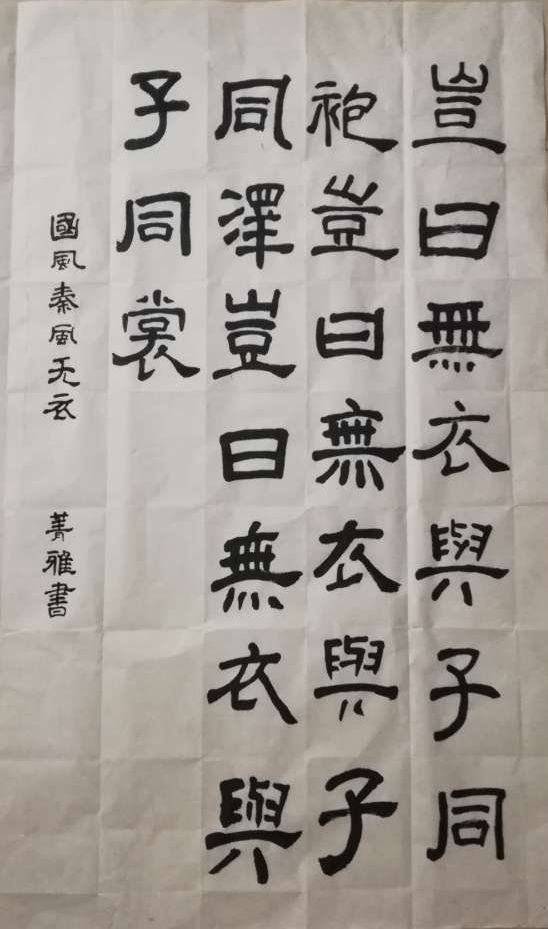 豈曰無衣與子同
袍豈曰無衣與子
同澤豈曰無衣與
子同裳
國風秦風无衣
菁雅書